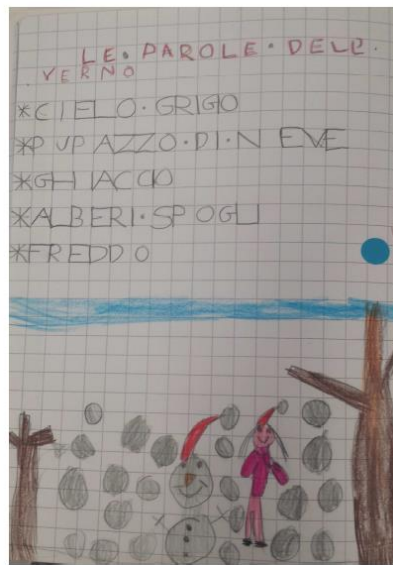 LE·PAROLE·DELL·
VERNO
*CIELO·GRIGO
*PUPAZZO·DI·NEVE
*GHIACCIO
*ALBERI·SPOGLI
*FREDDO